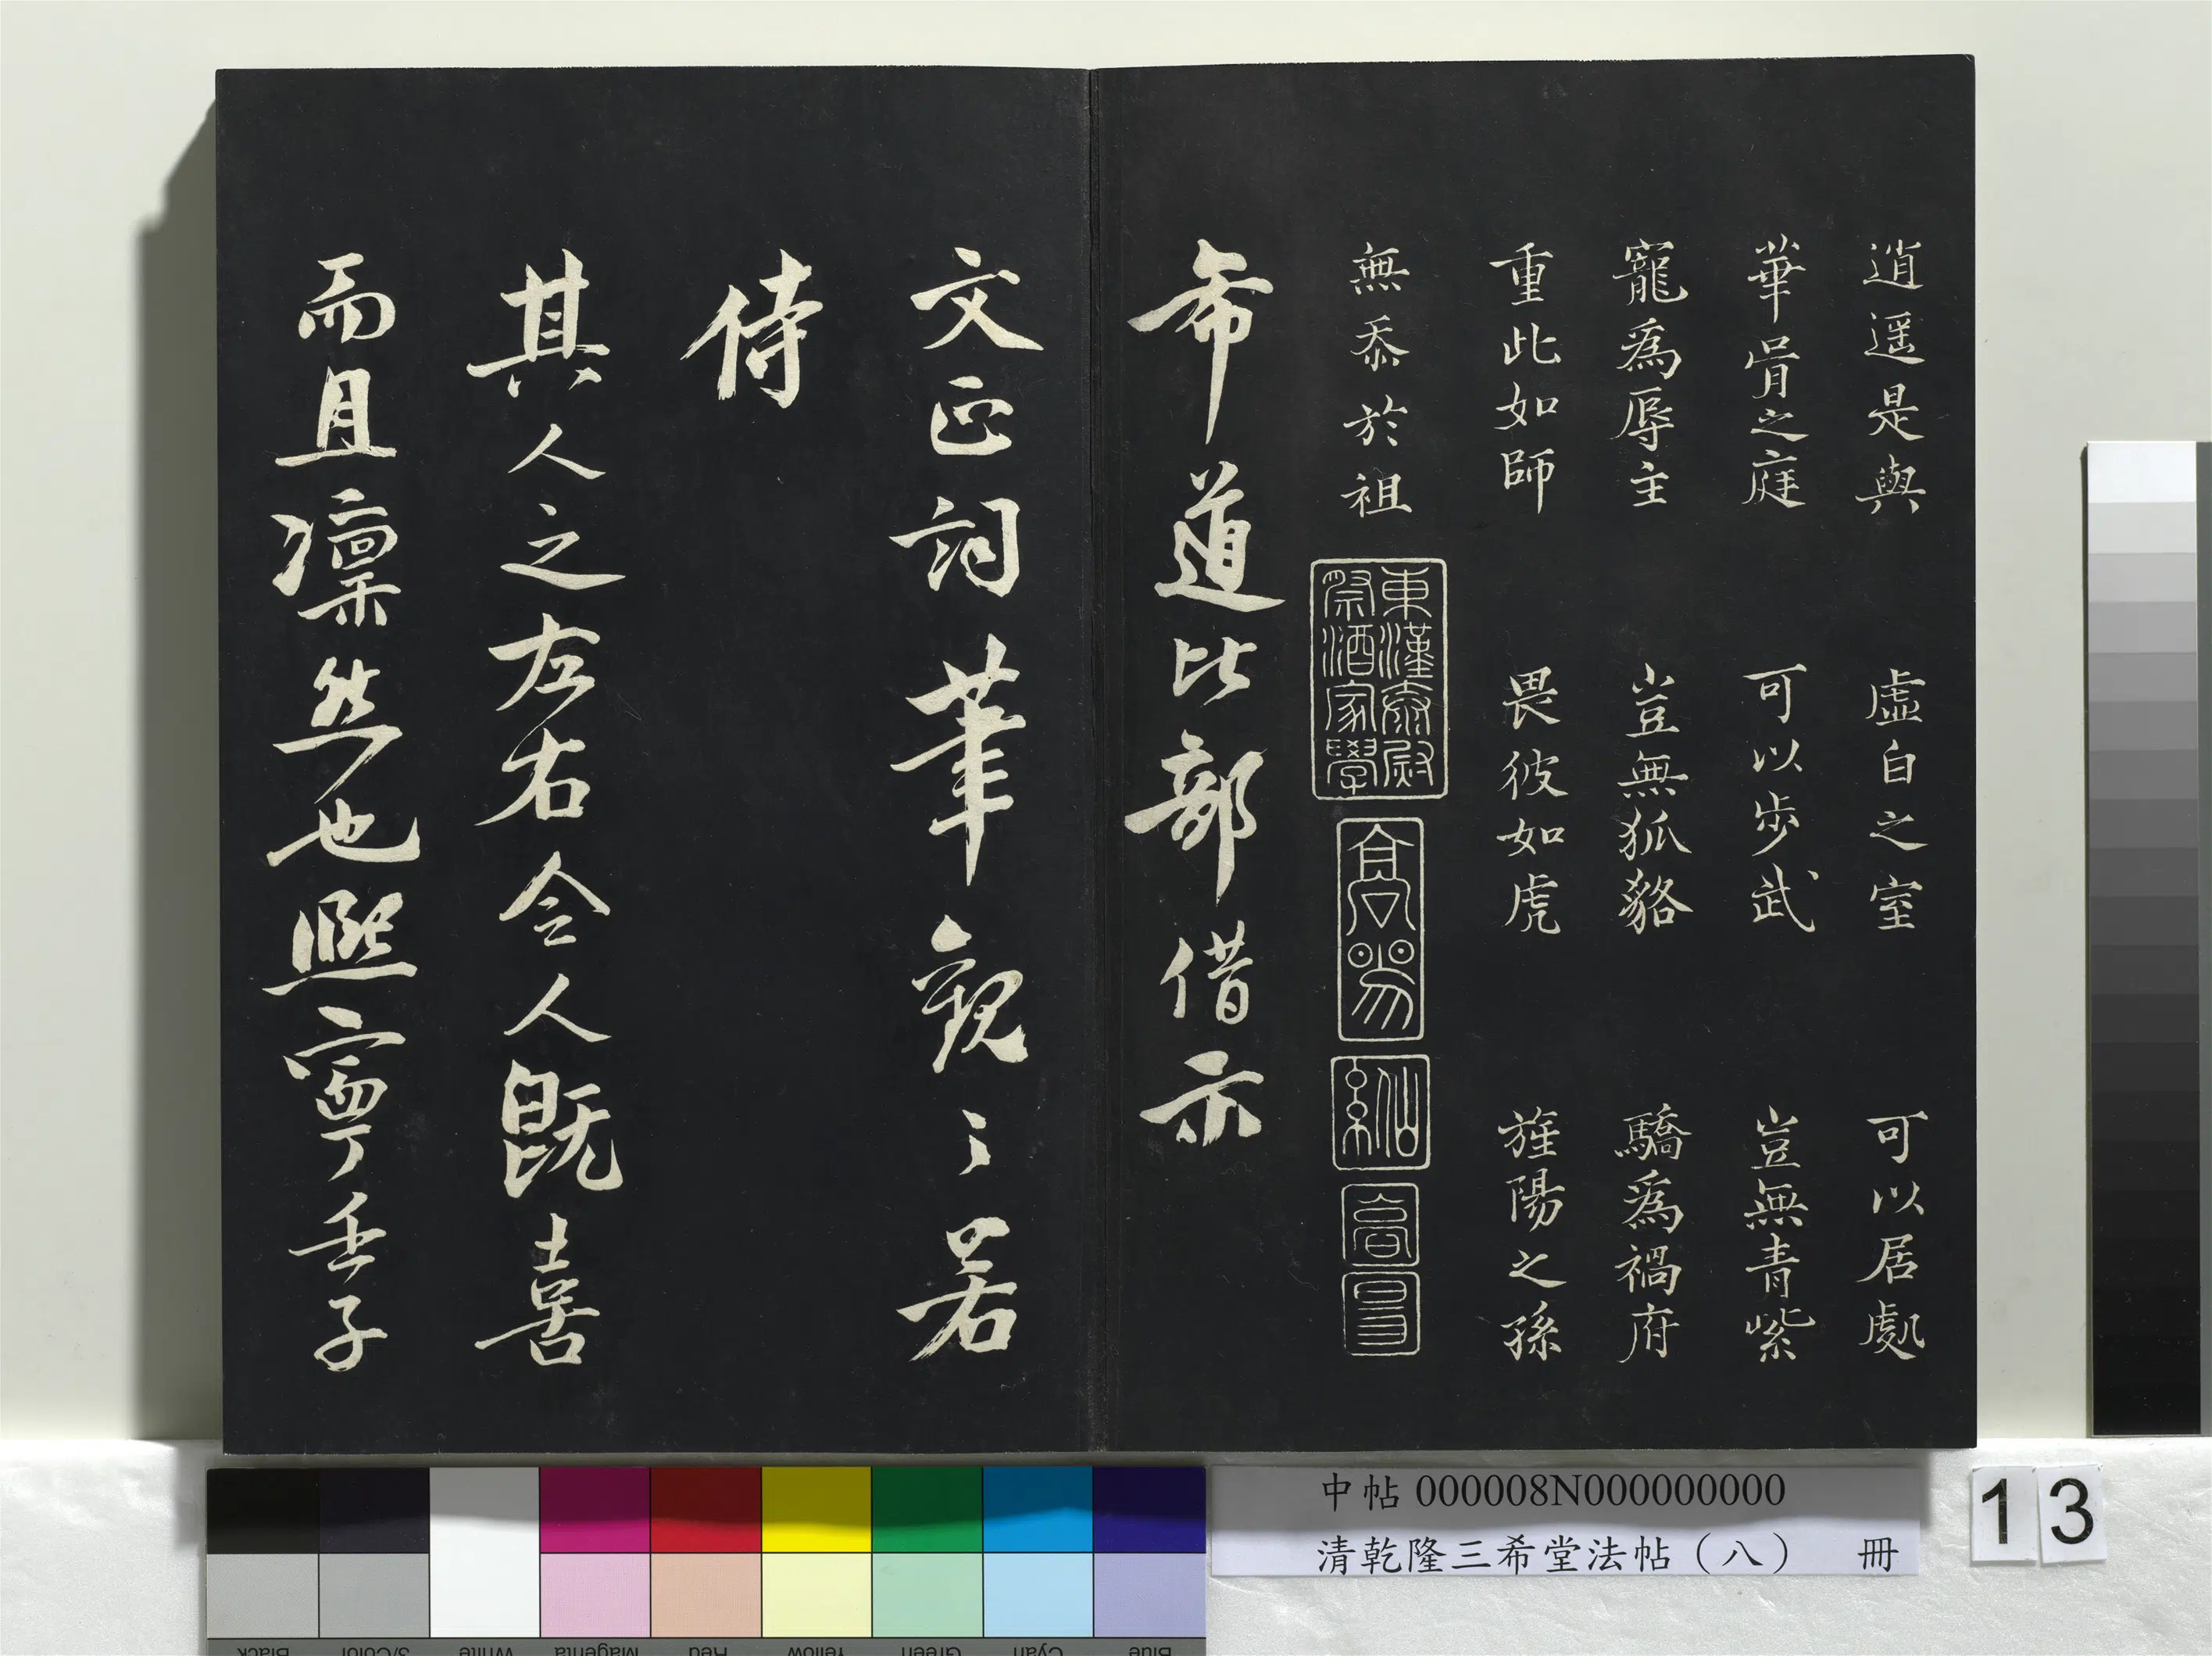 逍遥是與 虛白之室 可以居處
華胥之庭 可以步武 豈無青紫
寵爲辱主 豈無狐貉 驕爲禍府
重此如師 畏彼如虎 旌陽之孫
無忝於祖
東漢泰尉
祭酒家學
高陽
仙系
希道比部借示
文正詞筆觀〻若
侍
其人之左右令人既喜
而且凛然也熙寧壬子
中帖 000008N000000000
清乾隆三希堂法帖（八） 冊
13
Black
3/Color
White
Magenta
Red
Yellow
Green
Cyan
Blue